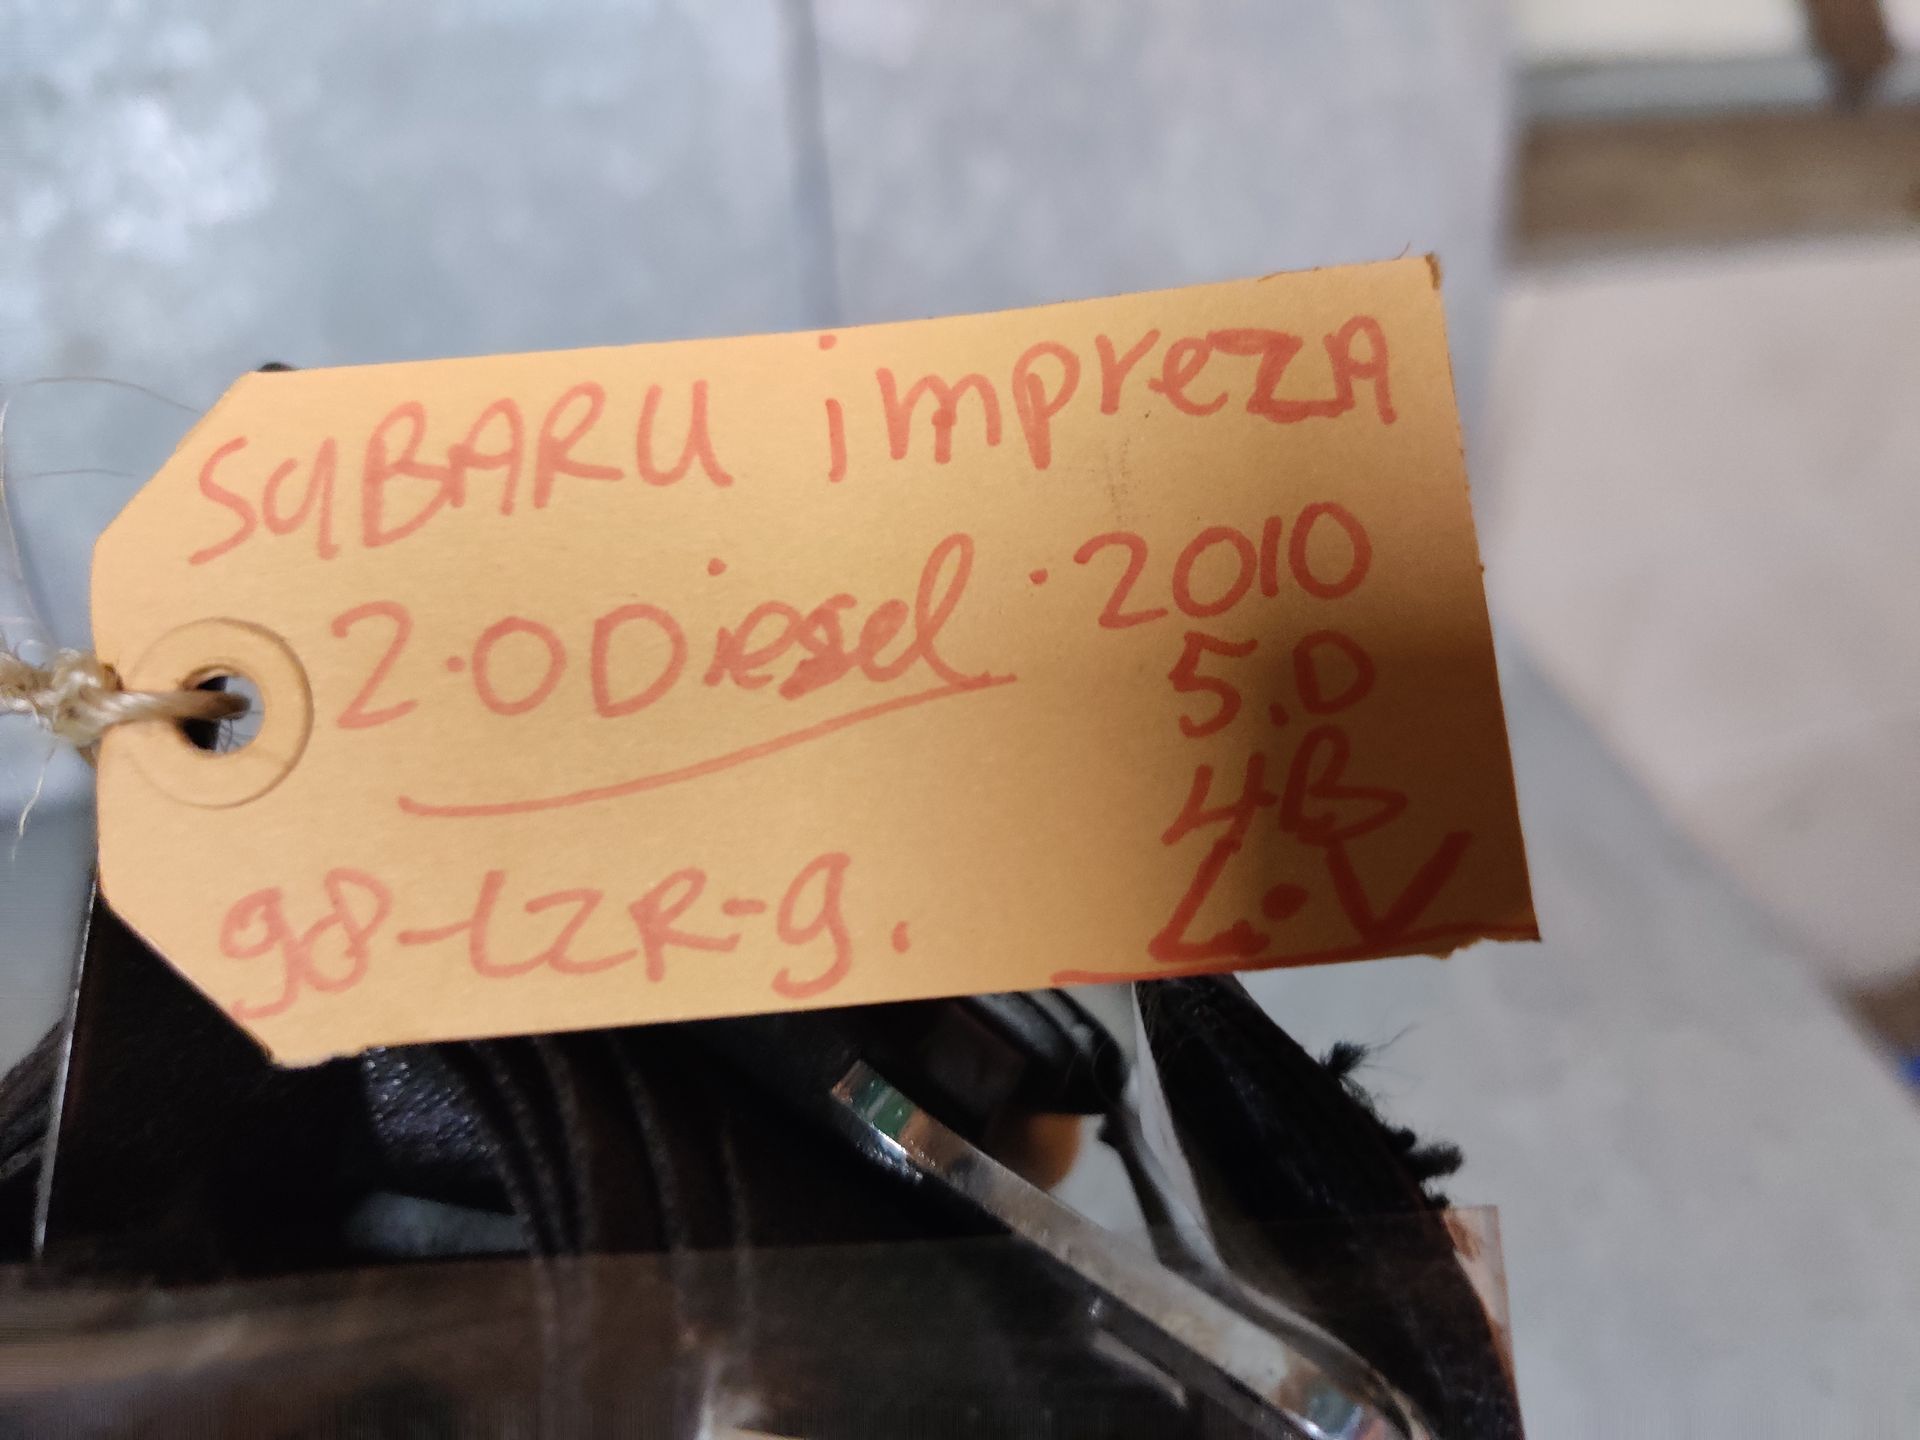 SUBARU impreza
2.0 Diesel. 2010
5.D
4B
98-LZR-9. L.V